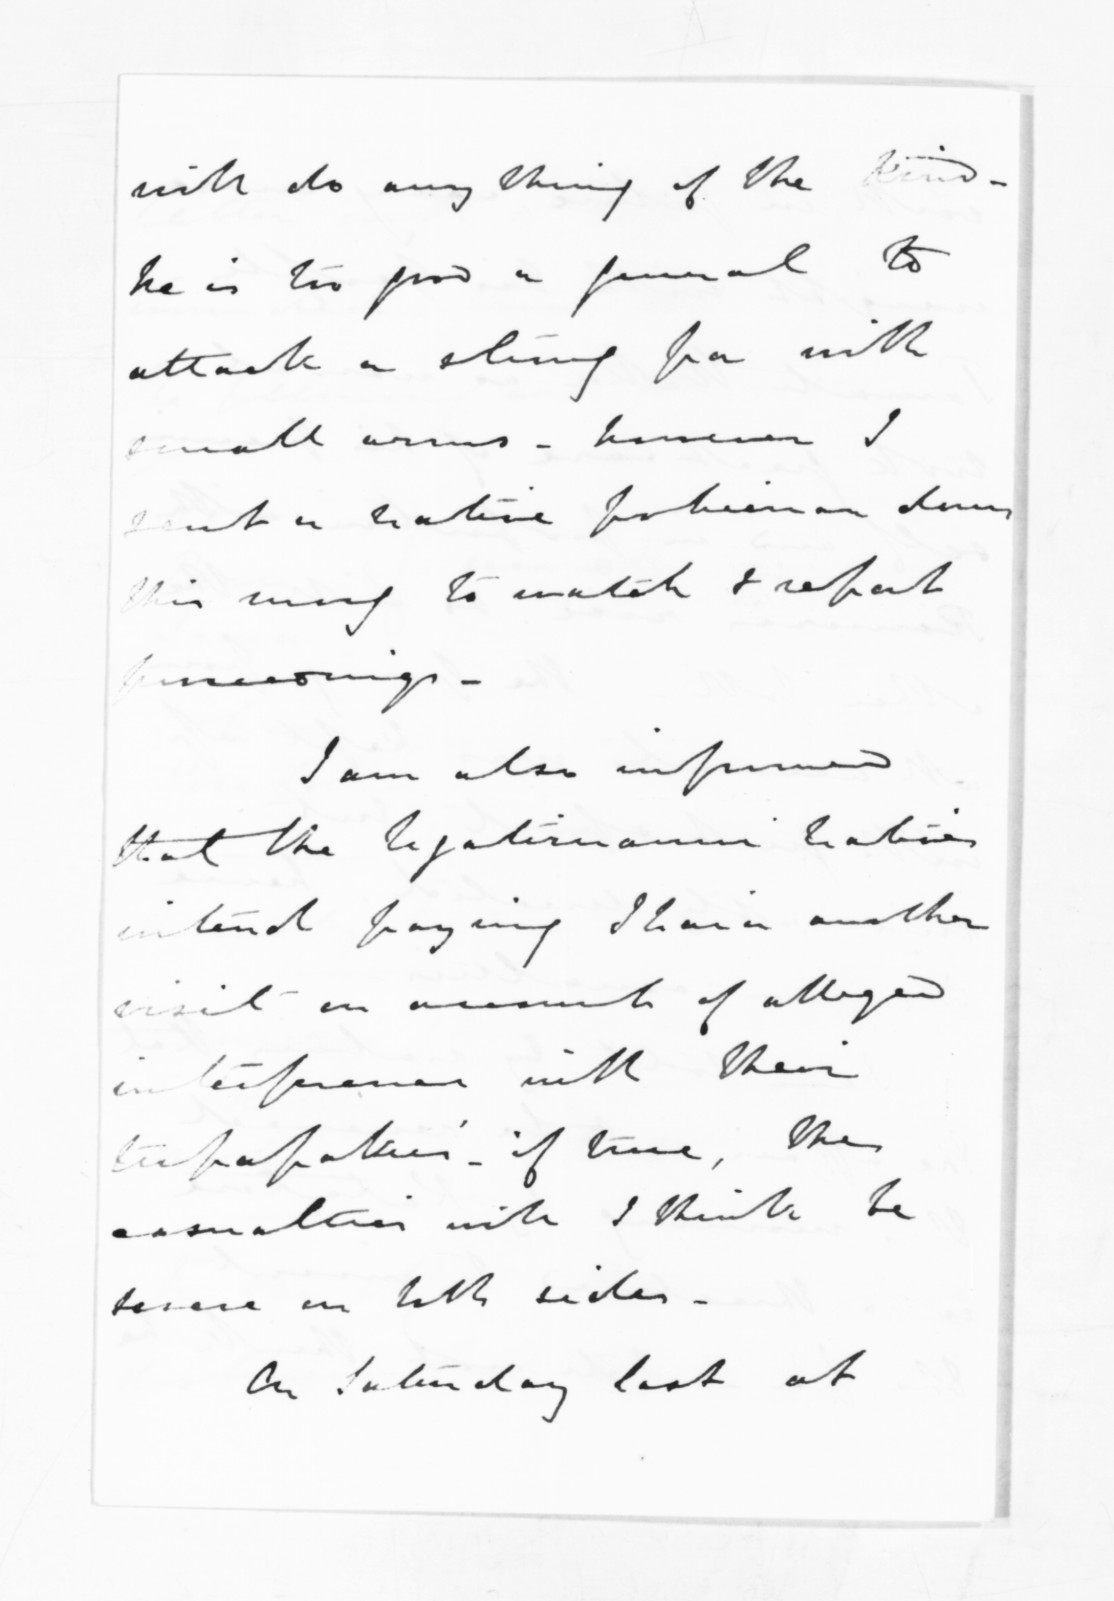 will do any thing of the kind -
he is too good a general to
attack a strong pa with
small arms - however I
sent a native policeman down
this morng to watch & report
proceedings -
I am also informed
that the Ngatimaniu natives
intend paying Ihaia another
visit on account of alleged
interference with their
tupapakus' - if true, the
casualties will I think be
severe on both sides -
On Saturday last at